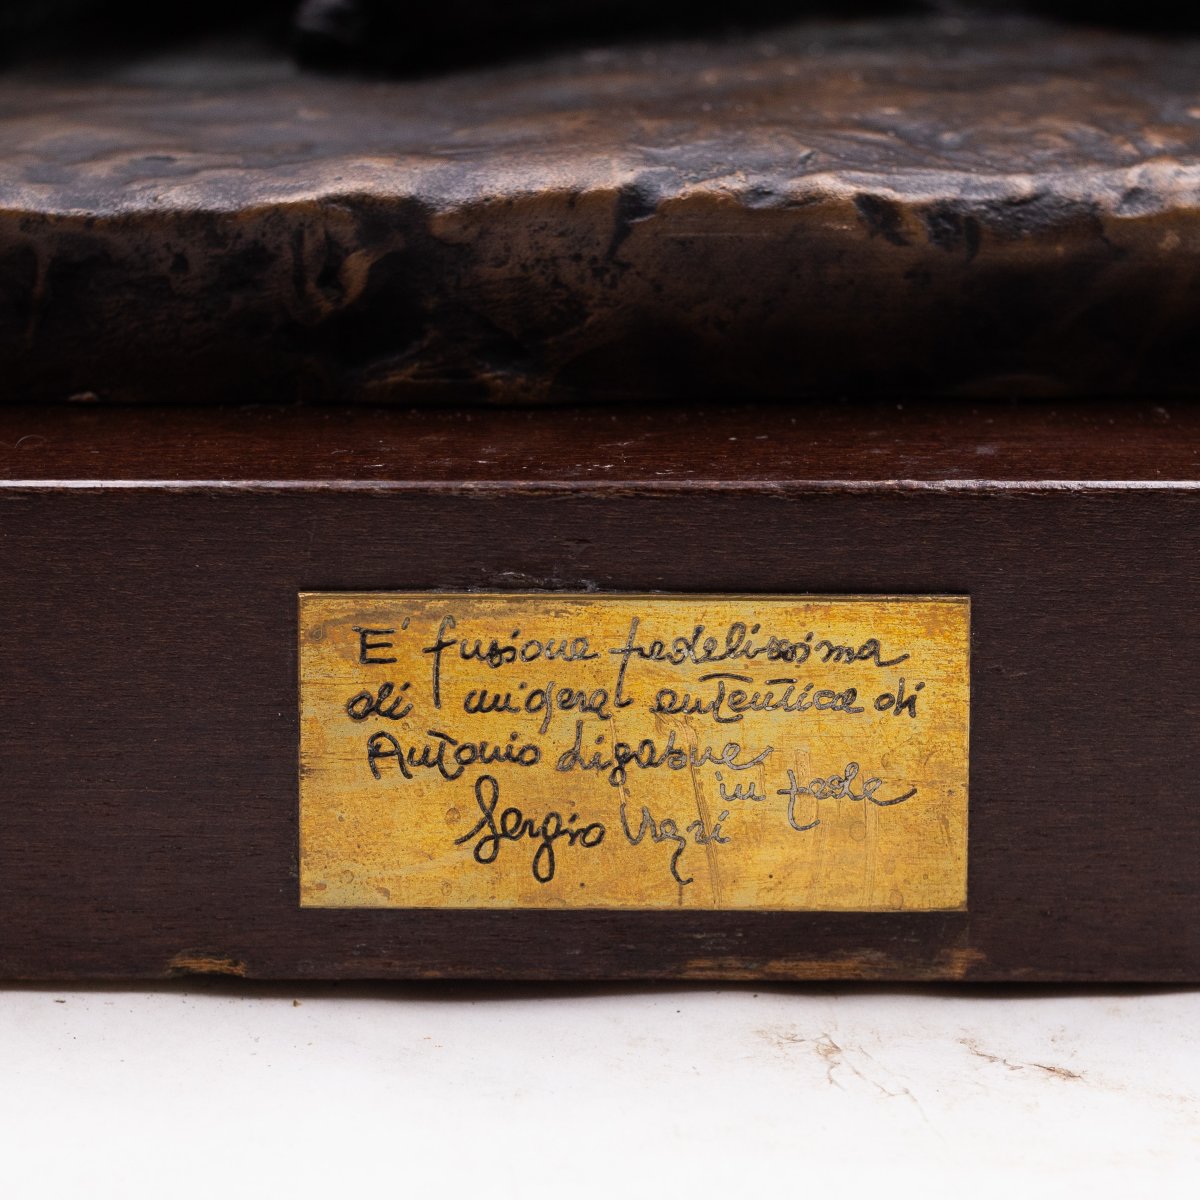 E' fusione fedelissima
di un'opera autentica di
Antonio Ligabue
in fede
Sergio Negri